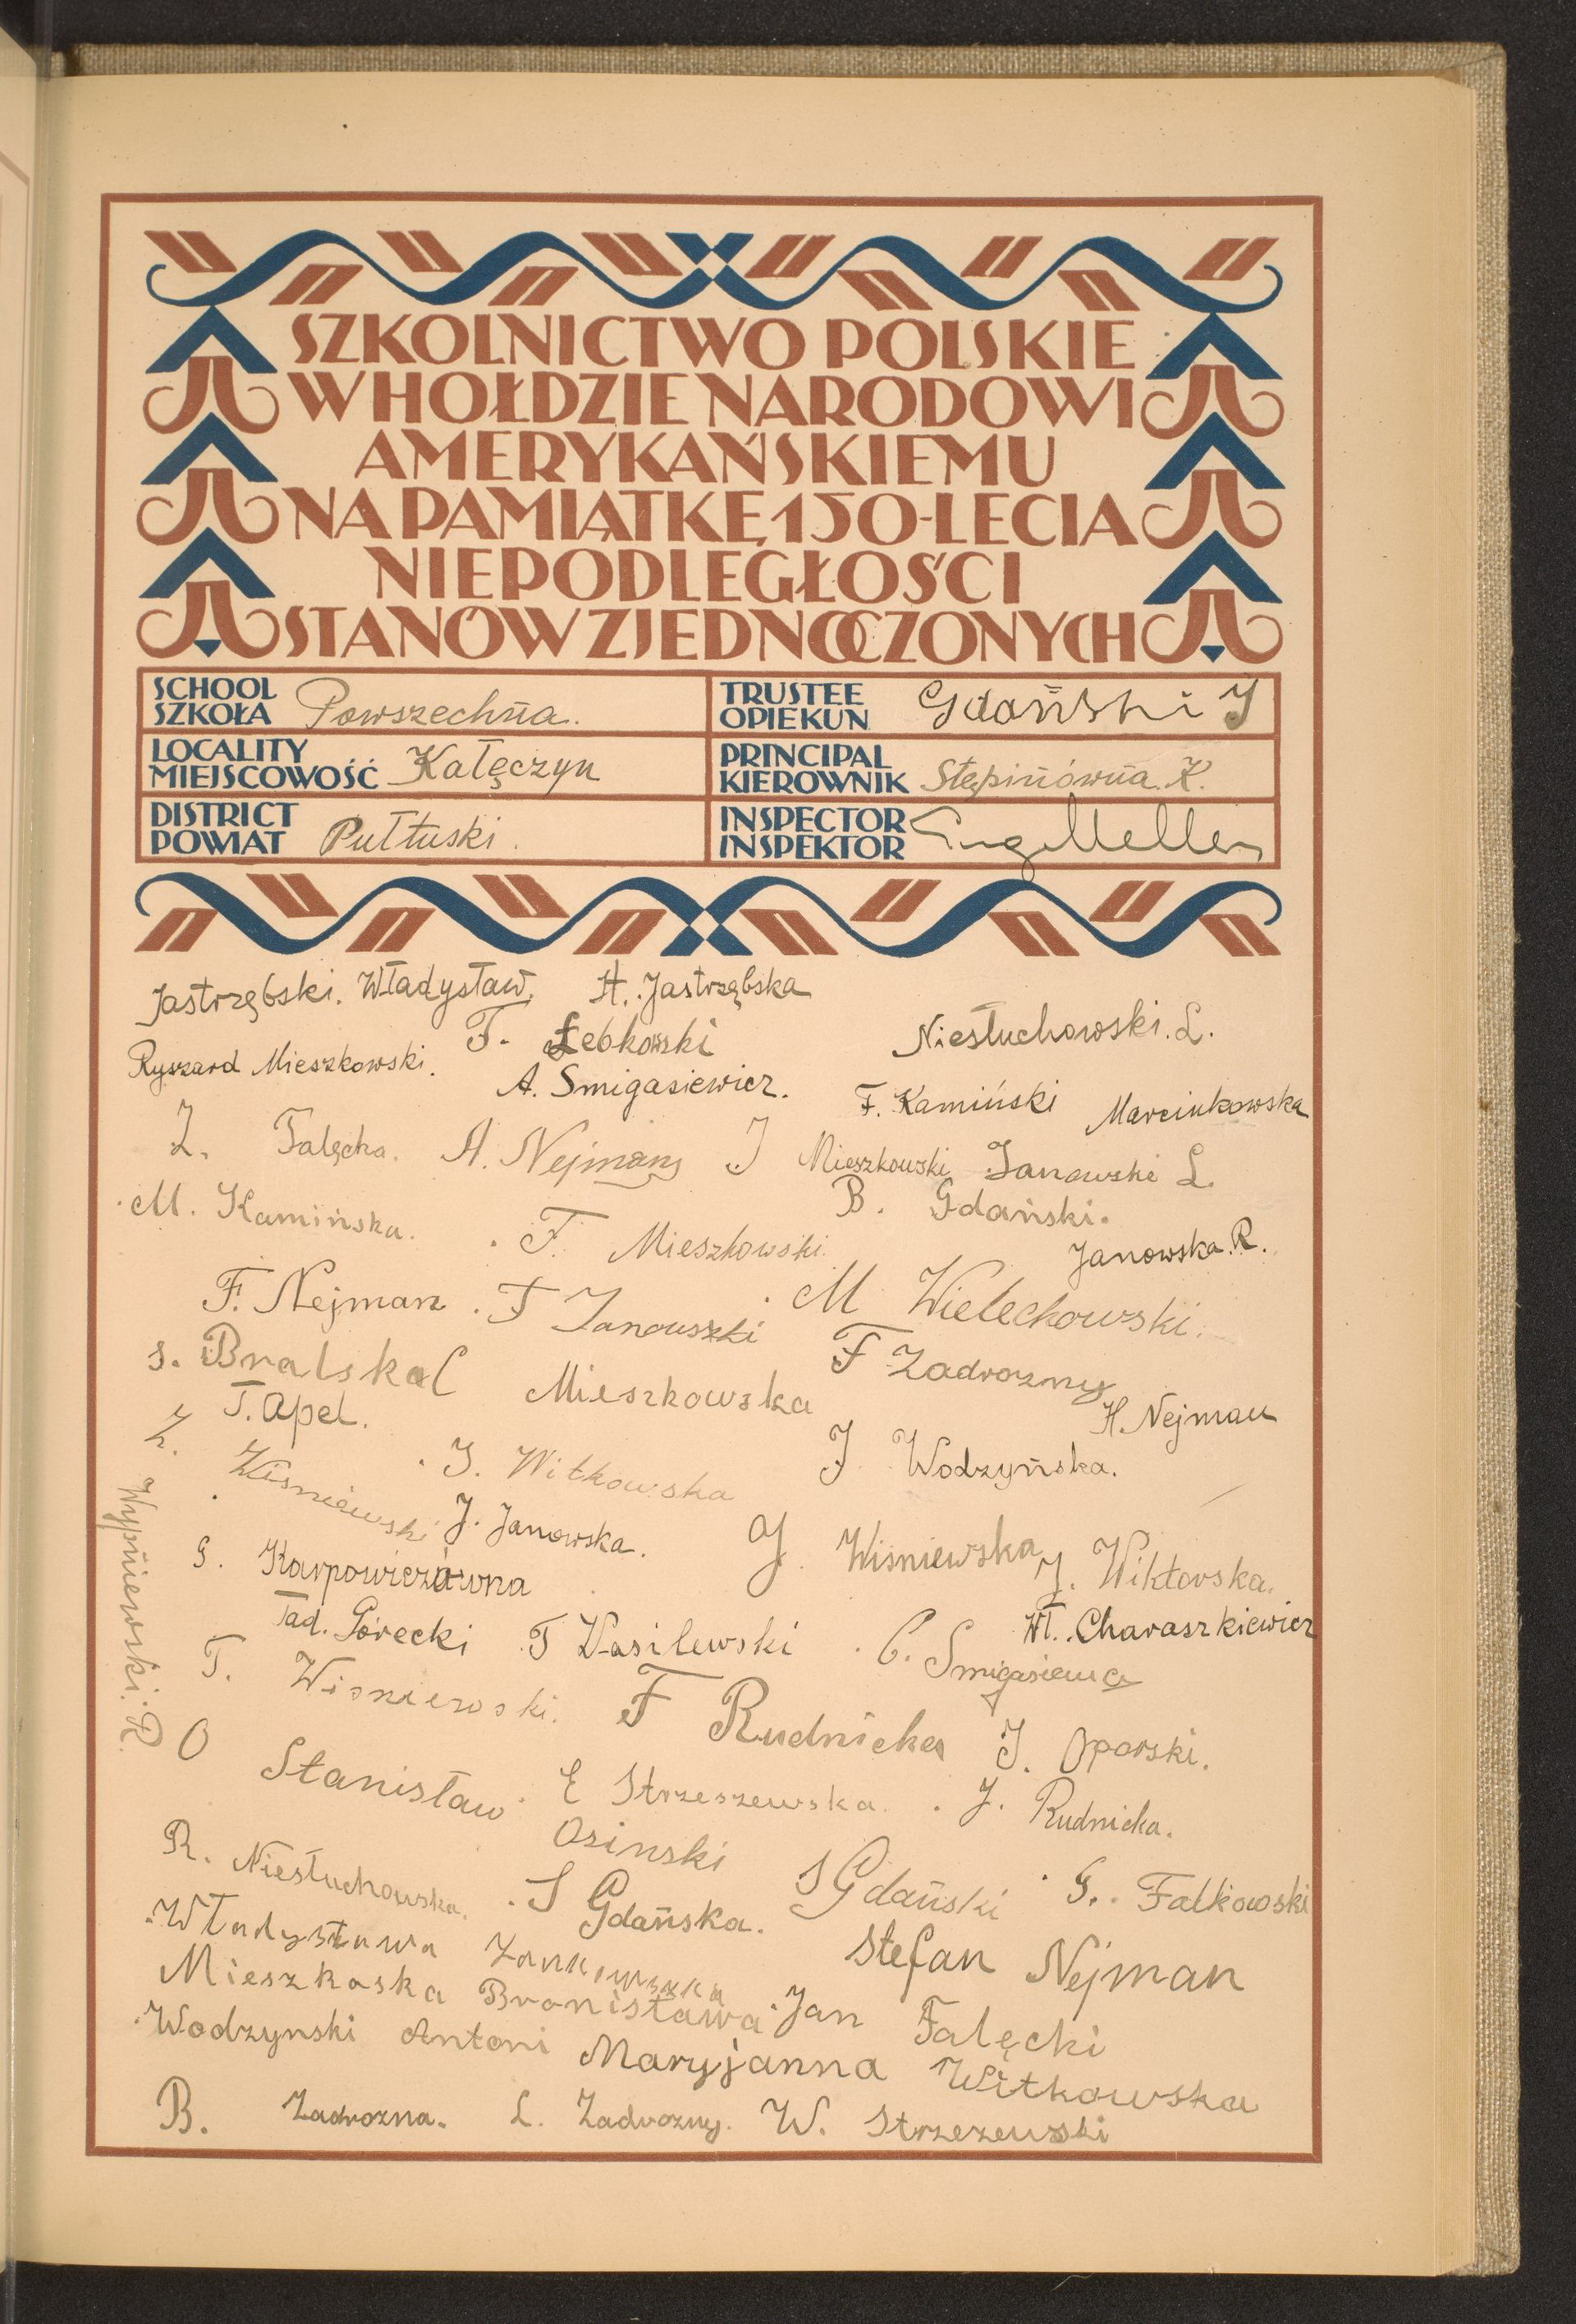 SZKOLNICTWO POLSKIE
W HOŁDZIE NARODOWI
AMERYKAŃSKIEMU
NA PAMIĄTKĘ 150-LECIA
NIEPODLEGŁOŚCI
STANÓW ZJEDNOCZONYCH
SCHOOL SZKOŁA Powszechna.
TRUSTEE OPIEKUN Gdański J
LOCALITY MIEJSCOWOŚĆ Kałęczyn
PRINCIPAL KIEROWNIK Stępniówna. K.
DISTRICT POWIAT Pułtuski.
INSPECTOR INSPEKTOR
Jastrzębski. Władysław, H. Jastrzębska
T. Łebkowski Niestuchowski. L.
Ryszard Mieszkowski. A. Smigasiewicz.
F. Kamiński Marcinkowska
Z. Falęcka. A. Nejman J Mieszkowski Janowski L.
M. Kamińska. B. Gdański.
F. Mieszkowski. Janowska. R.
F. Nejman F Janouszki M Wielechowski.
S. Bralska C Mieszkowska F Zadrozny
T. Apel. H. Nejman
Z. Wisniewski J. Witkowska J Wodzyńska.
J. Janowska. J. Wiśniewska J. Wiktorska.
G. Karpowiczówna
Tad. Górecki T Wasilewski Wł. Charaszkiewicz
C. Smigasiewicz
Wypniewski. R.
T. Wisniewski. F Rudnicka J. Oparski.
O Stanisław E Strzeszewska. J. Rudnicka.
Osinski
R. Niestuchowska. S Gdańska. S Gdański G. Falkowski
Władysława Stefan Nejman
Mieszkoska Bronisława Jan Falęcki
Wodzynski Antoni Maryjanna Witkowska
B. Zadrozna. L. Zadrozny. W. Strzezewski